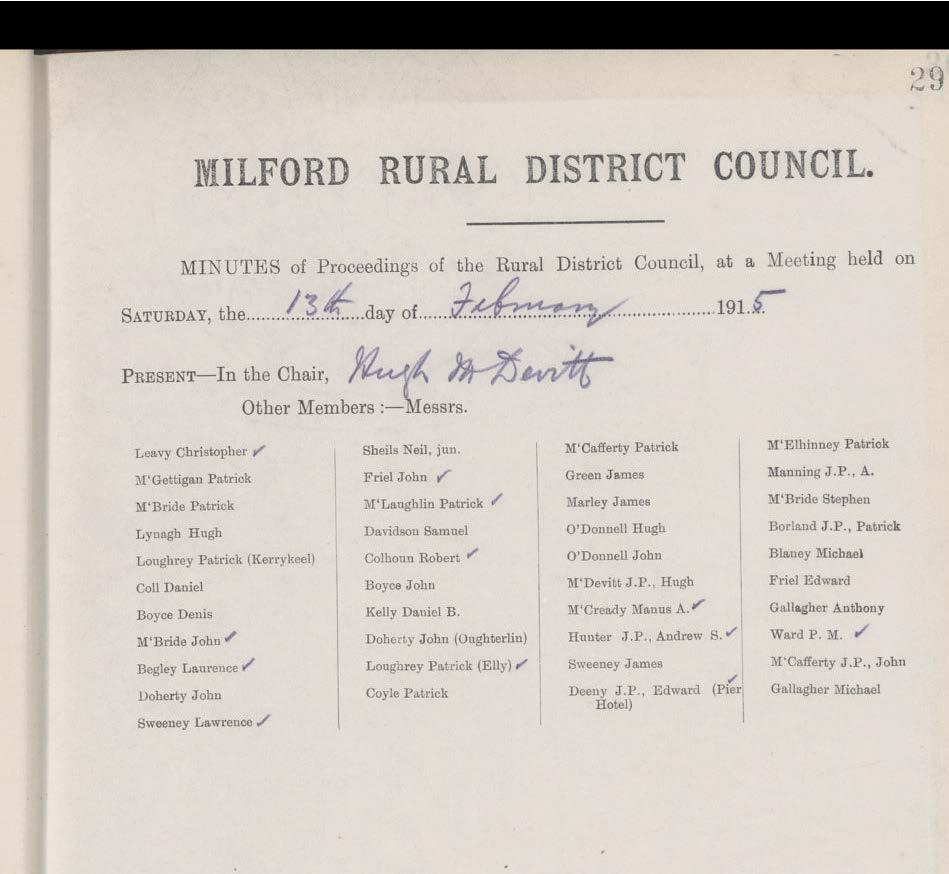 29
MILFORD RURAL DISTRICT COUNCIL.
MINUTES of Proceedings of the Rural District Council, at a Meeting held on
SATURDAY, the 13th day of February 1915.
PRESENT—In the Chair, Hugh McDevitt
Other Members :—Messrs.
Leavy Christopher ✓
M‘Gettigan Patrick
M‘Bride Patrick
Lynagh Hugh
Loughrey Patrick (Kerrykeel)
Coll Daniel
Boyce Denis
M‘Bride John ✓
Begley Laurence ✓
Doherty John
Sweeney Lawrence ✓
Sheils Neil, jun.
Friel John ✓
M‘Laughlin Patrick ✓
Davidson Samuel
Colhoun Robert ✓
Boyce John
Kelly Daniel B.
Doherty John (Oughterlin)
Loughrey Patrick (Elly) ✓
Coyle Patrick
M‘Cafferty Patrick
Green James
Marley James
O’Donnell Hugh
O’Donnell John
M‘Devitt J.P., Hugh
M‘Cready Manus A. ✓
Hunter J.P., Andrew S. ✓
Sweeney James
Deeny J.P., Edward (Pier ✓
Hotel)
M‘Elhinney Patrick
Manning J.P., A.
M‘Bride Stephen
Borland J.P., Patrick
Blaney Michael
Friel Edward
Gallagher Anthony
Ward P. M. ✓
M‘Cafferty J.P., John
Gallagher Michael